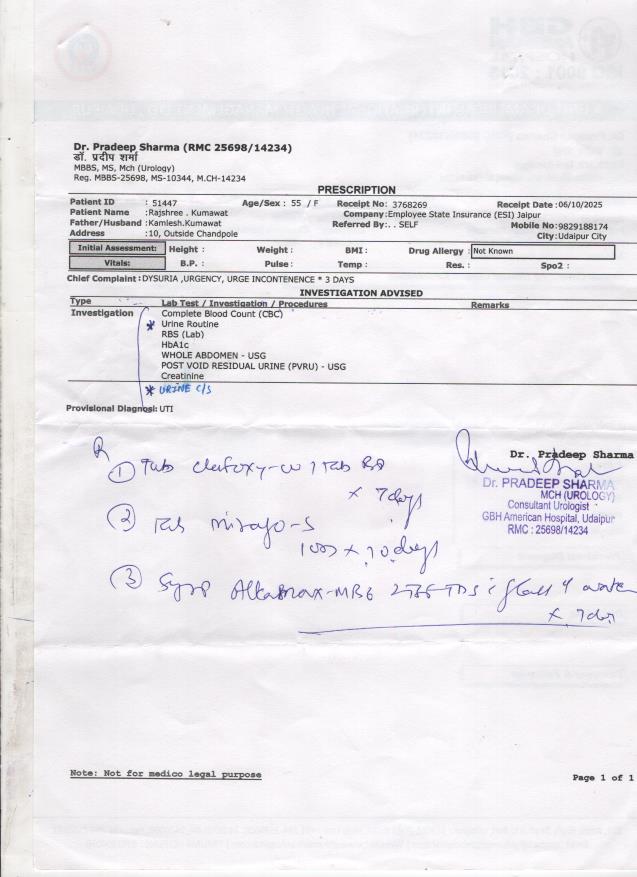 Dr. Pradeep Sharma (RMC 25698/14234)
डॉ. प्रदीप शर्मा
MBBS, MS, Mch (Urology)
Reg. MBBS-25698, MS-10344, M.CH-14234
PRESCRIPTION
Patient ID : 51447 Age/Sex : 55 / F Receipt No: 3768269 Receipt Date :06/10/2025
Patient Name :Rajshree . Kumawat Company:Employee State Insurance (ESI) Jaipur
Father/Husband :Kamlesh.Kumawat Referred By:. . SELF Mobile No:9829188174
Address :10, Outside Chandpole City:Udaipur City
Initial Assessment: Height : Weight : BMI : Drug Allergy : Not Known
Vitals: B.P. : Pulse : Temp : Res. : Spo2 :
Chief Complaint :DYSURIA ,URGENCY, URGE INCONTENENCE * 3 DAYS
INVESTIGATION ADVISED
Type Lab Test / Investigation / Procedures Remarks
Investigation Complete Blood Count (CBC)
* Urine Routine
RBS (Lab)
HbA1c
WHOLE ABDOMEN - USG
POST VOID RESIDUAL URINE (PVRU) - USG
Creatinine
* URINE C/S
Provisional Diagnosi: UTI
Dr. Pradeep Sharma
Dr. PRADEEP SHARMA
MCH (UROLOGY)
Consultant Urologist
GBH American Hospital, Udaipur
RMC : 25698/14234
① Tab 1 Tab BD
x 7 days
② Tab
x 10 days
③ Syrp TDS glass water
x 7 days
Note: Not for medico legal purpose
Page 1 of 1